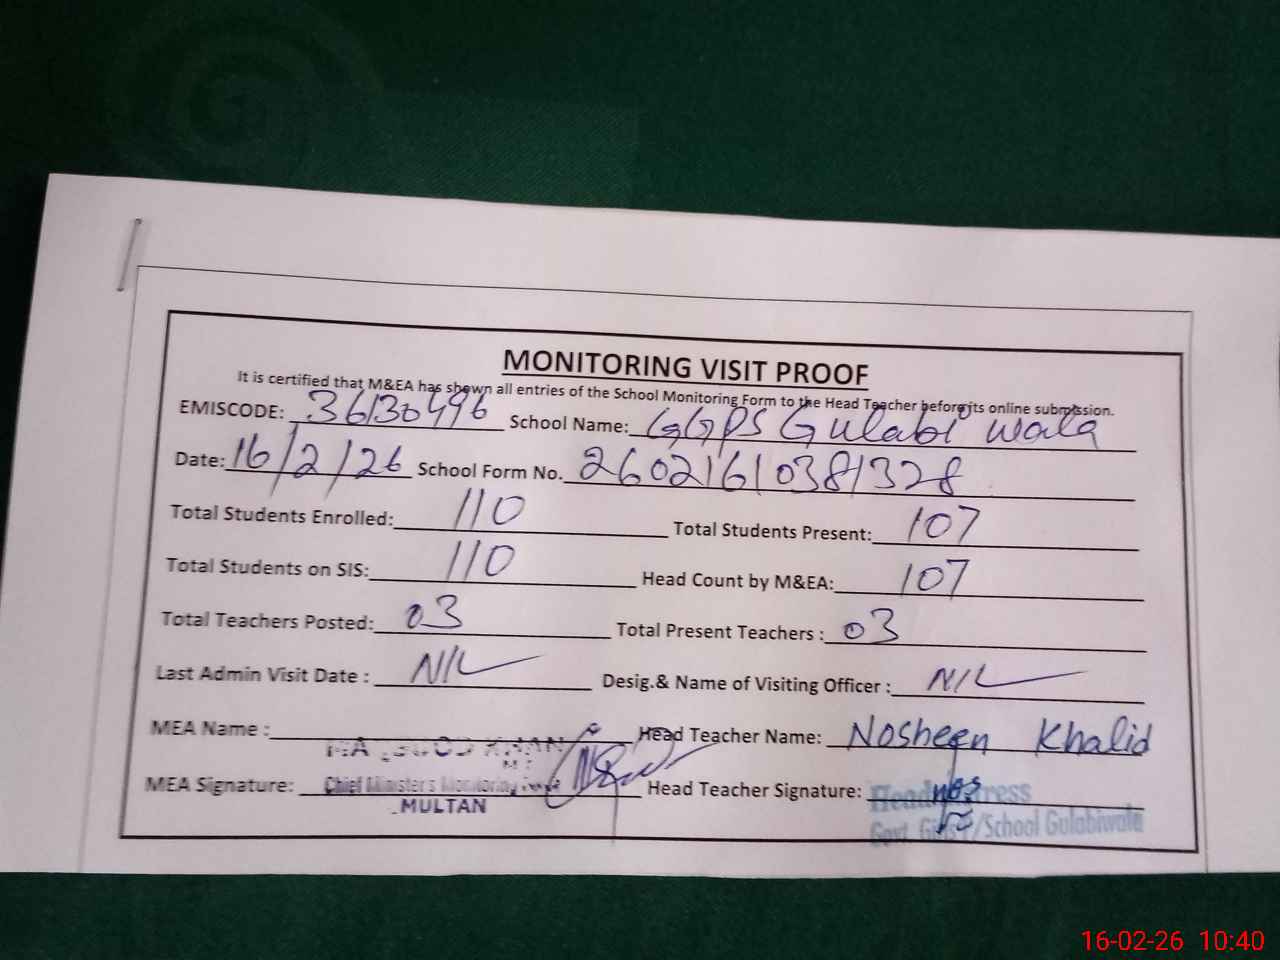 MONITORING VISIT PROOF
It is certified that M&EA has shown all entries of the School Monitoring Form to the Head Teacher before its online submission.
EMISCODE: 36130496 School Name: GGPS Gulabi wala
Date: 16/2/26 School Form No. 26021610381328
Total Students Enrolled: 110 Total Students Present: 107
Total Students on SIS: 110 Head Count by M&EA: 107
Total Teachers Posted: 03 Total Present Teachers : 03
Last Admin Visit Date : NIL Desig.& Name of Visiting Officer : NIL
MEA Name : KHAN Head Teacher Name: Nosheen Khalid
MEA Signature: Chief Minister's Monitoring Force Head Teacher Signature: Headmistress
MULTAN Govt. Girls P/School Gulabiwala
16-02-26 10:40